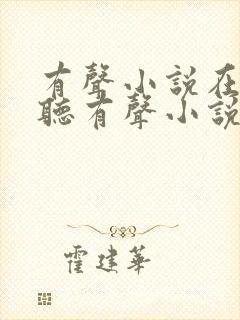 有聲小說在
聽有聲小說
霍建華